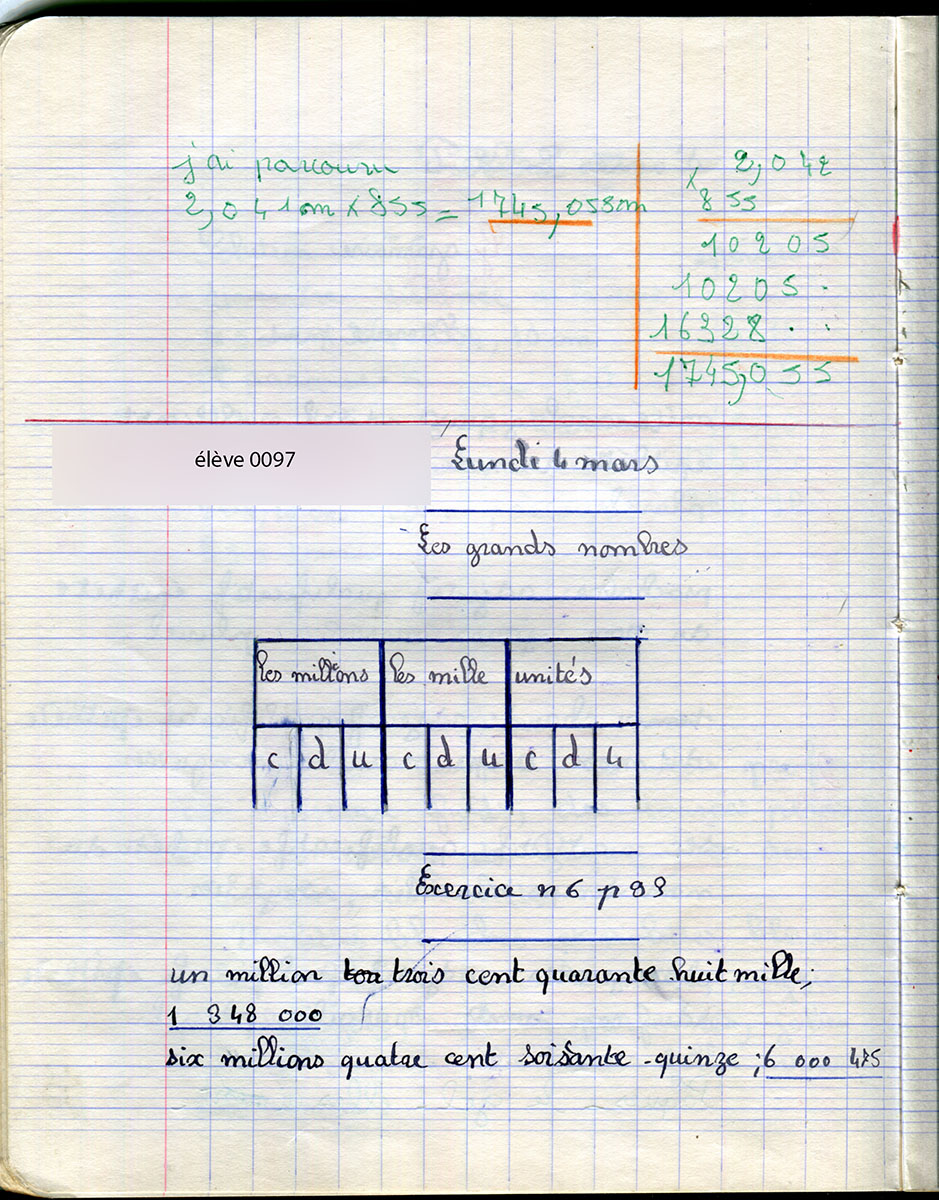 j'ai parcouru
2,041m x 855 = 1745,055m
2,041
x 855
10205
10205 .
16328 . .
1745,055
élève 0097
Lundi 4 mars
Les grands nombres
les millions les mille unités
c d u c d u c d u
Exercice n 6 p 93
un million tou trois cent quarante huit mille;
1 348 000
six millions quatre cent soisante-quinze ; 6 000 475